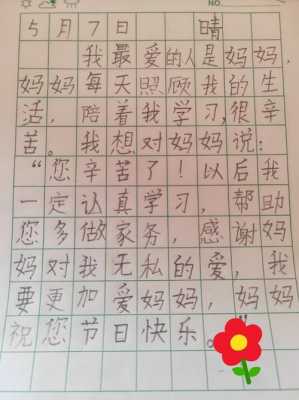 NO.
5月7日 晴
我最爱的人是妈妈，
妈妈每天照顾我的生
活，陪着我学习，很辛
苦。我想对妈妈说：
“您辛苦了！以后我
一定认真学习，帮助
您多做家务，感谢妈
妈对我无私的爱，我
要更加爱妈妈，妈妈
祝您节日快乐。”